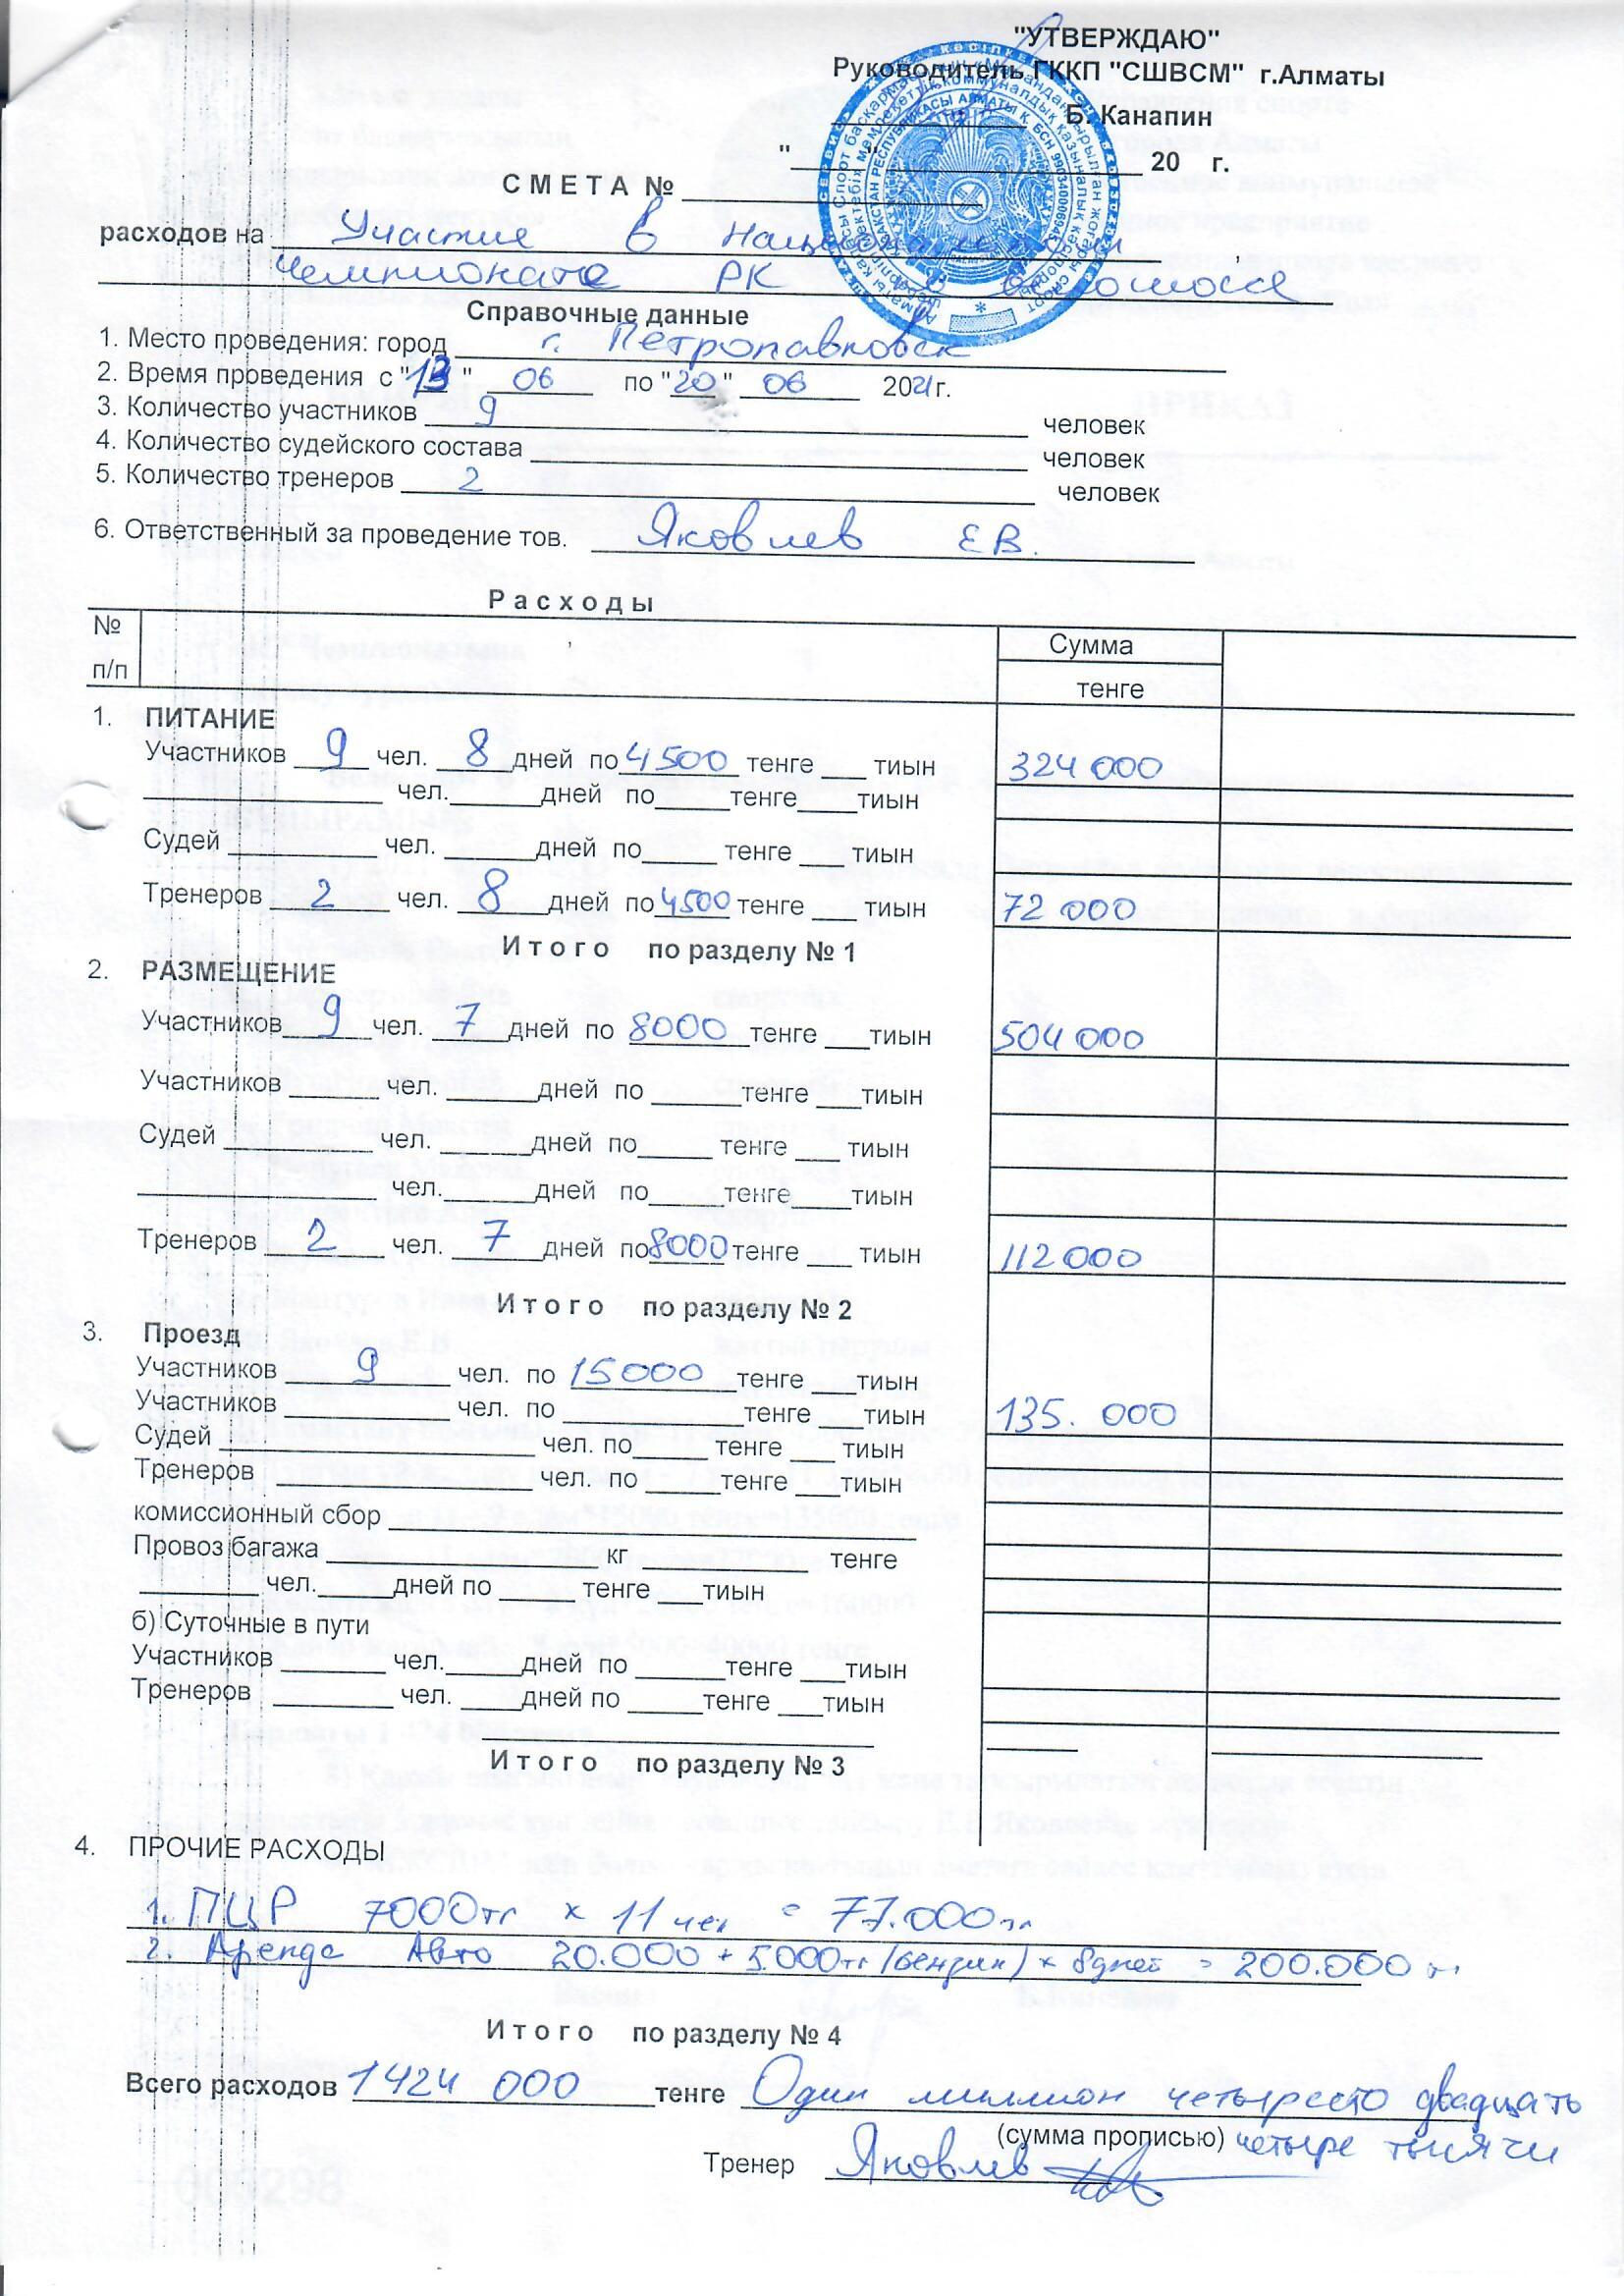 "УТВЕРЖДАЮ"
Руководитель ГККП "СШВСМ" г.Алматы
Б. Канапин
"____" 20 г.
С М Е Т А №
расходов на Участие в Национальном
Чемпионата РК по велошоссе
Справочные данные
1. Место проведения: город г. Петропавловск
2. Время проведения с "13" 06 по "20" 06 2021г.
3. Количество участников 9 человек
4. Количество судейского состава человек
5. Количество тренеров 2 человек
6. Ответственный за проведение тов. Яковлев ЕВ.
Р а с х о д ы
№ п/п Сумма тенге
1. ПИТАНИЕ
Участников 9 чел. 8 дней по 4500 тенге ___ тиын 324 000
____ чел.____дней по____тенге____тиын
Судей ____ чел. ____дней по____ тенге ___ тиын
Тренеров 2 чел. 8 дней по 4500 тенге ___ тиын 72 000
И т о г о по разделу № 1
2. РАЗМЕЩЕНИЕ
Участников 9 чел. 7 дней по 8000 тенге ___тиын 504 000
Участников ____ чел. ____дней по ____тенге ___тиын
Судей ____ чел. ____дней по____ тенге ___ тиын
____ чел.____дней по____тенге____тиын
Тренеров 2 чел. 7 дней по 8000 тенге ___ тиын 112 000
И т о г о по разделу № 2
3. Проезд
Участников 9 чел. по 15000 тенге ___тиын
Участников ____ чел. по ____тенге ___тиын 135. 000
Судей ____ чел. по____тенге ___ тиын
Тренеров ____ чел. по ____тенге ___тиын
комиссионный сбор ____
Провоз багажа ____ кг ____ тенге
____ чел.____дней по____тенге____тиын
б) Суточные в пути
Участников ____ чел.____дней по ____тенге ___тиын
Тренеров ____ чел. ____дней по ____тенге ___тиын
И т о г о по разделу № 3
4. ПРОЧИЕ РАСХОДЫ
1. ПЦР 7000тг х 11 чел = 77.000тг
2. Аренда Авто 20.000 + 5.000тг (бензин) х 8дней = 200.000 тг
И т о г о по разделу № 4
Всего расходов 1424 000 тенге Один миллион четыресто двадцать
(сумма прописью) четыре тысячи
Тренер Яковлев